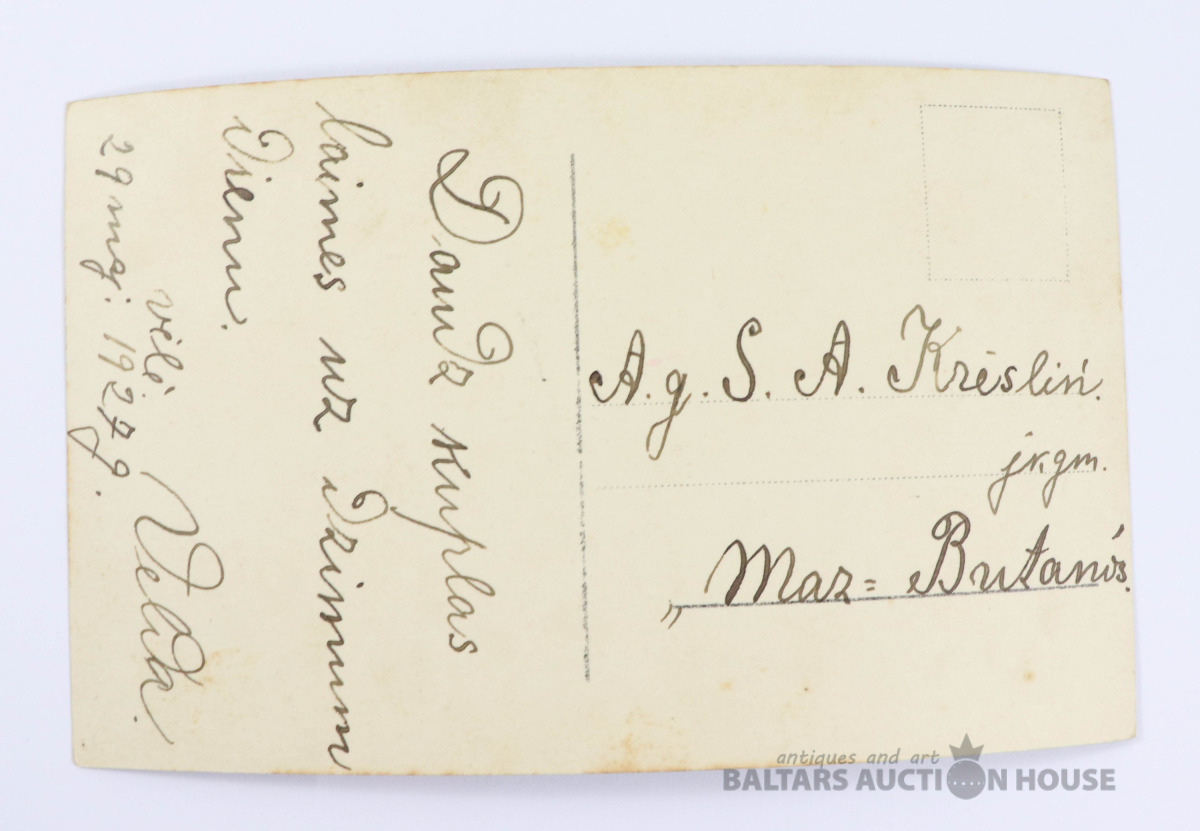 Daudz kuplas
laimes uz dzimum
dienu.
vēlē Velta.
29 maj: 1927 g.
A. g. S. A. Krēsliń.
jr.gm.
„Maz= Butanōs.
antiques and art
BALTARS AUCTION HOUSE